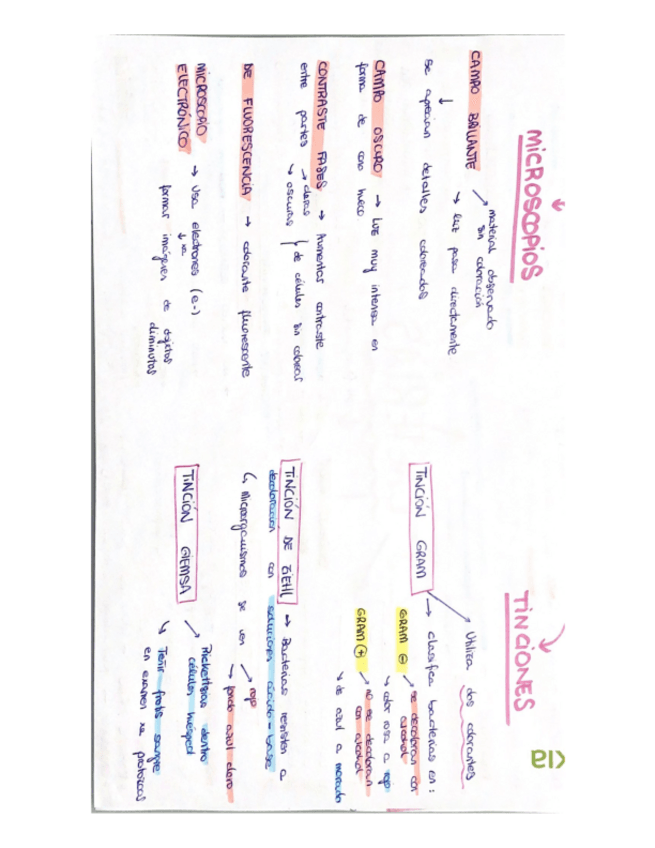 MICROSCOPIOS
CAMPO BRILLANTE
material observado
sin coloración
luz pasa directamente
se aprecian detalles coloreados
CAMPO OSCURO → Luz muy intensa en
forma de cono hueco
CONTRASTE FASES → Aumentar contraste
entre partes → claras
→ oscuras } de células sin colorear
DE FLUORESCENCIA → colorante fluorescente
MICROSCOPIO
ELECTRÓNICO → Usa electrones (e-)
↓ xa
formar imágenes de objetos
diminutos
TINCIONES
Utiliza dos colorantes
TINCIÓN GRAM → clasifica bacterias en:
GRAM ⊖ → se decoloran con
alcohol
→ color rosa a rojo
GRAM ⊕ → no se decoloran
con alcohol
→ de azul a morado
TINCIÓN DE ZIEHL → Bacterias resisten a
decoloración con soluciones ácido-base
↳ Microorganismos se ven → rojo
→ fondo azul claro
TINCIÓN GIEMSA
Rickettsias dentro
células huésped
↳ Teñir frotis sangre
en examen xa protozoos